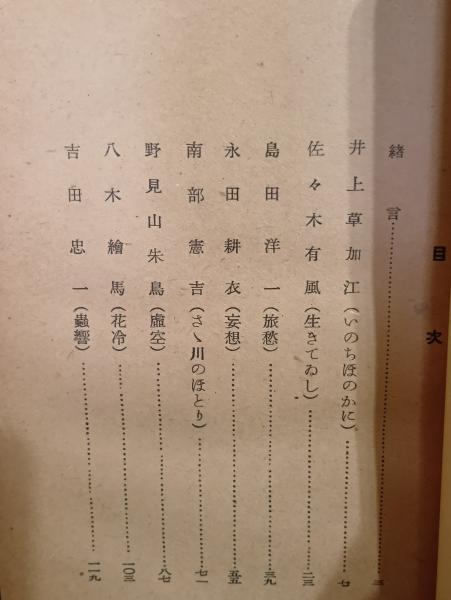 目次
緒言……………………三
井上草加江(いのちほのかに)…………七
佐々木有風(生きてゐし)…………二三
島田洋一(旅愁)…………三九
永田耕衣(妄想)…………五五
南部憲吉(さゝ川のほとり)…………七一
野見山朱鳥(虛空)…………八七
八木繪馬(花冷)…………一〇三
吉田忠一(蟲響)…………一一九